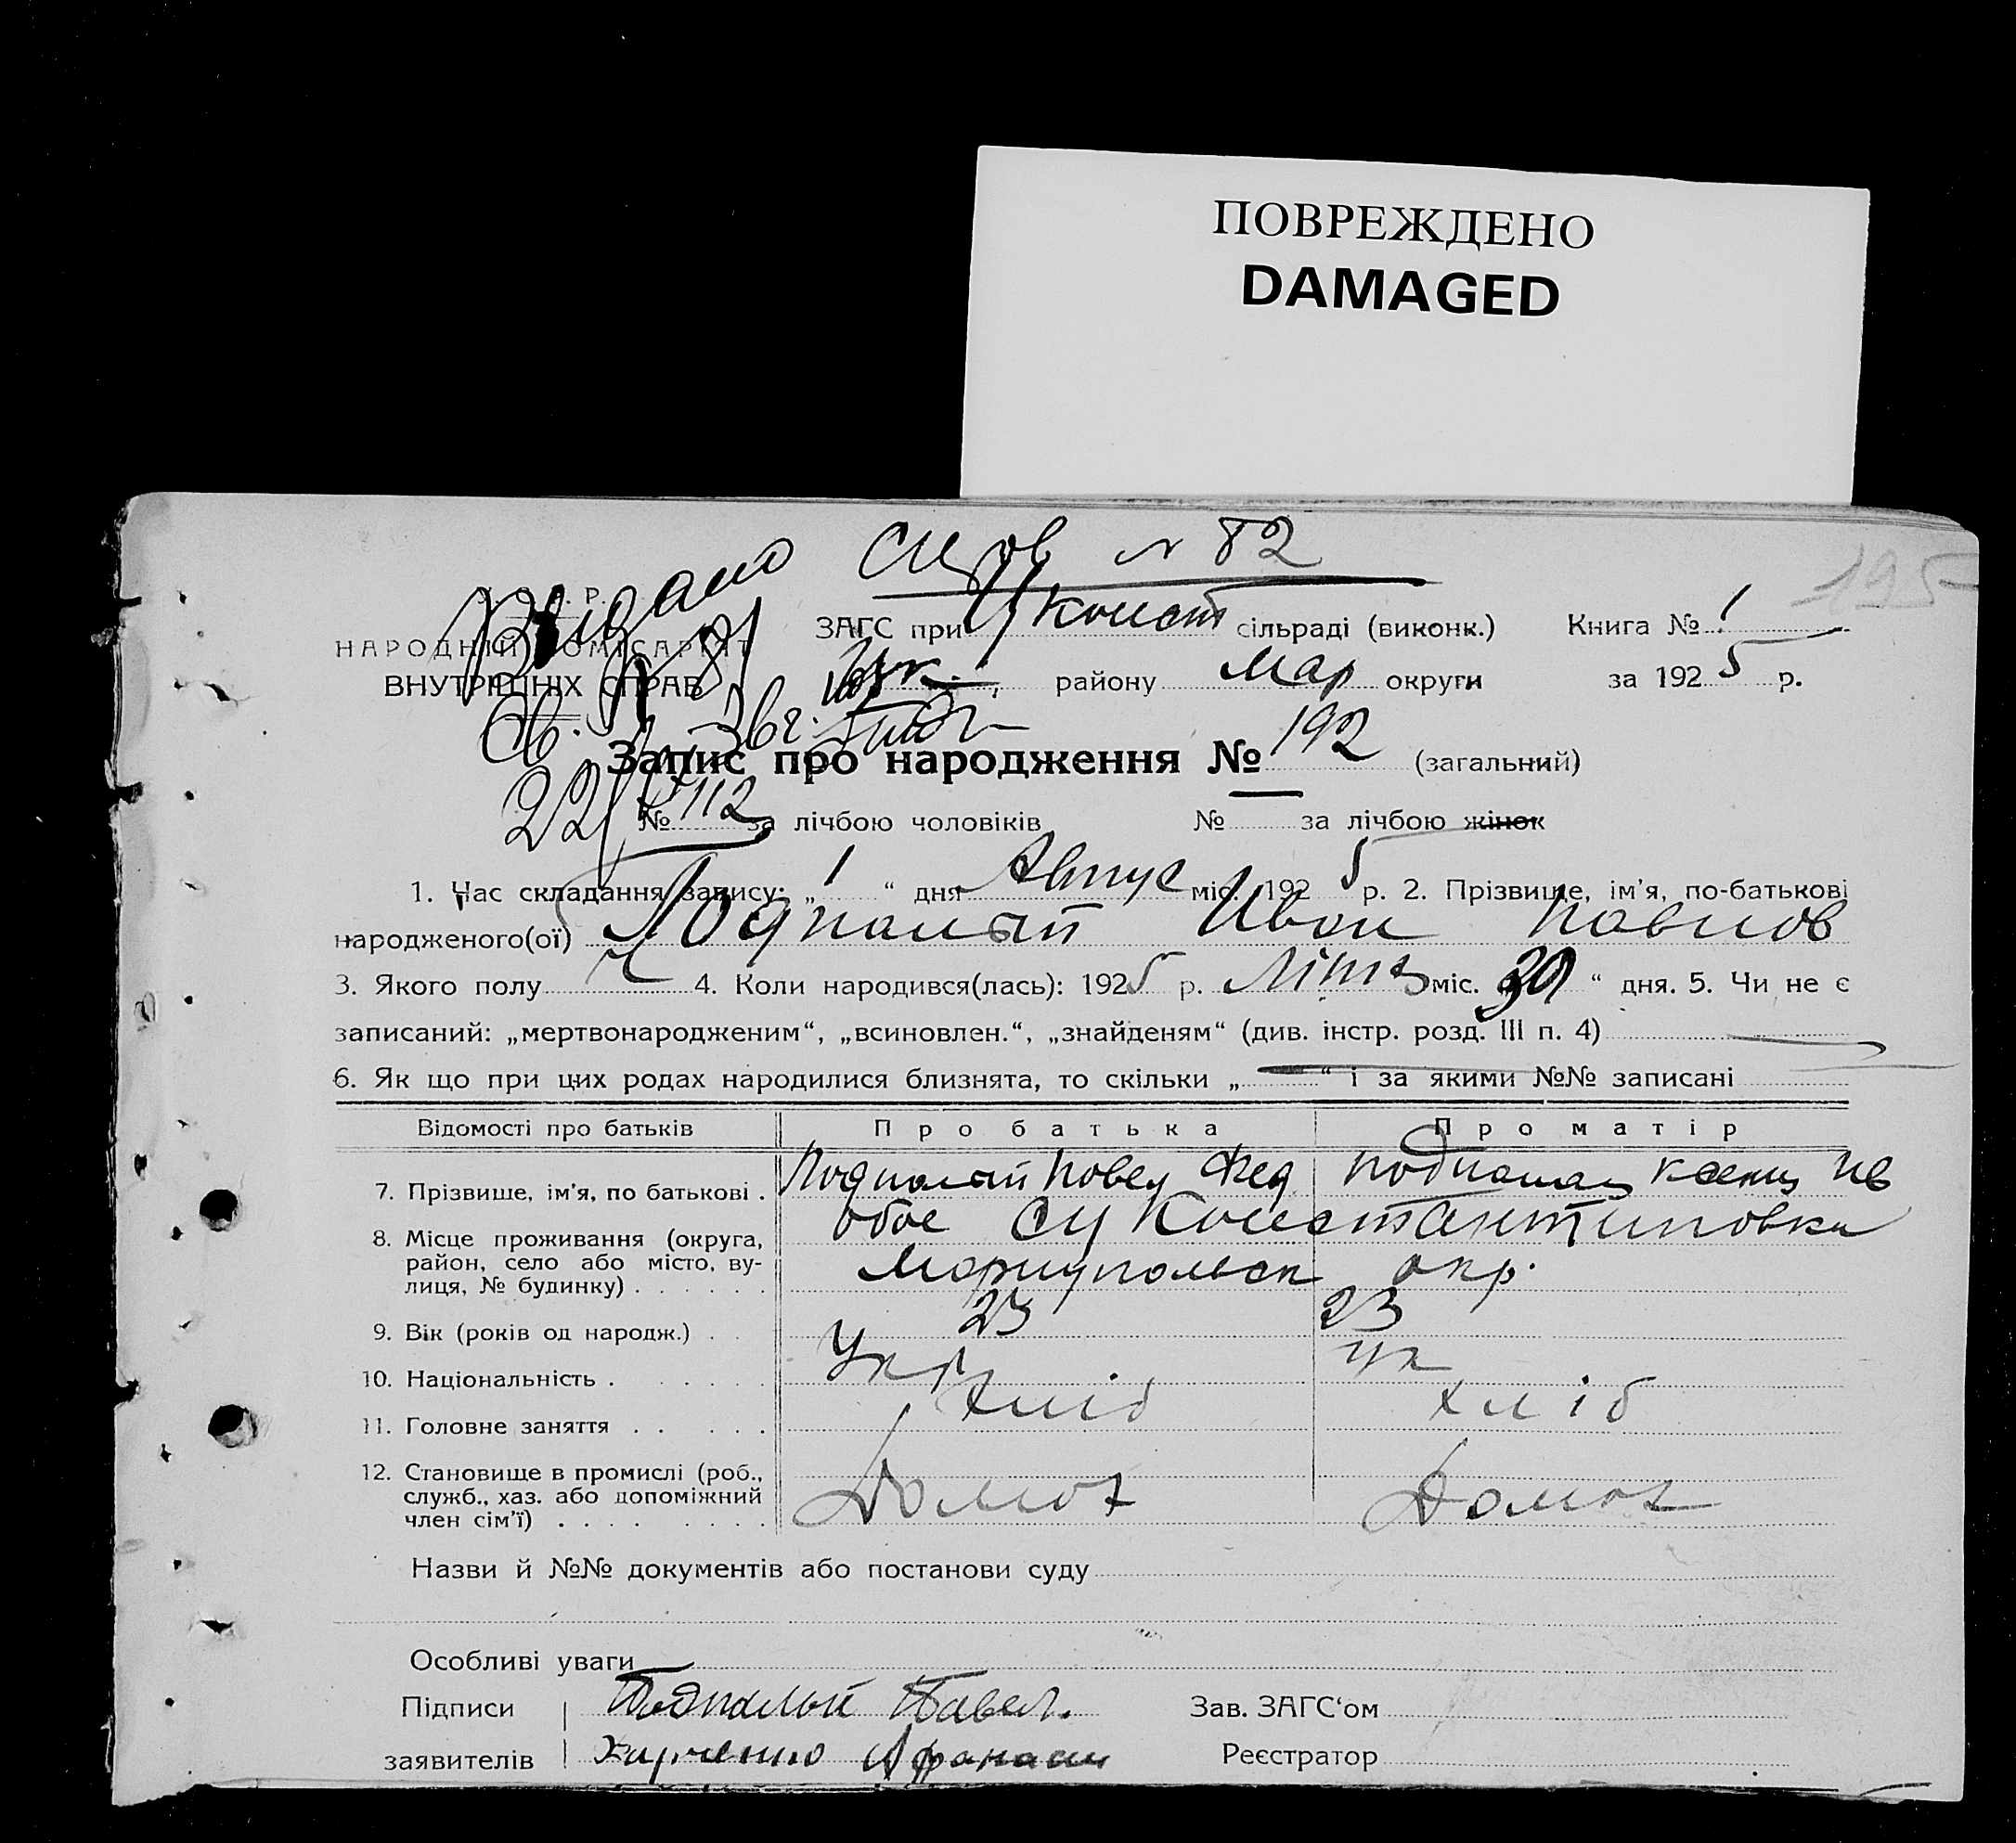 ПОВРЕЖДЕНО
DAMAGED
№ 82
195
Видано
У. С. Р. Р.
НАРОДНІЙ КОМІСАРІЯТ
ВНУТРІШНІХ СПРАВ
ЗАГС при У Конст сільраді (виконк.) Книга № 1
району Мар округи за 1925 р.
Св.
22/
Запис про народження № 192 (загальний)
№ 112 за лічбою чоловіків № за лічбою жінок
1. Час складання запису: „ 1 “ дня Август міс. 1925 р. 2. Прізвище, ім’я, по-батькові
народженого(ої) Подпалый Иван Павлов
3. Якого полу Ч 4. Коли народився(лась): 1925 р. міс. 30 “ дня. 5. Чи не є
записаний: „мертвонародженим“, „всиновлен.“, „знайденям“ (див. інстр. розд. III п. 4)
6. Як що при цих родах народилися близнята, то скільки „ — “ і за якими №№ записані
Відомості про батьків Про батька Про матір
7. Прізвище, ім’я, по батькові . Подпалый Повел Фед Подпалая Ксени Ив
8. Місце проживання (округа, обое СЦ Константиновка
район, село або місто, ву-
лиця, № будинку) . . . . . . Мориупольск окр.
9. Вік (років од народж.) . . 23 23
10. Національність . . . . . . Укр Ук
11. Головне заняття . . . . . Хліб Хліб
12. Становище в промислі (роб.,
служб., хаз. або допоміжний
член сім’ї) . . . . . . . . Домох Домох
Назви й №№ документів або постанови суду
Особливі уваги
Підписи Подпалый Павел. Зав. ЗАГС‘ом
заявителів Харченко Афанаси Реєстратор